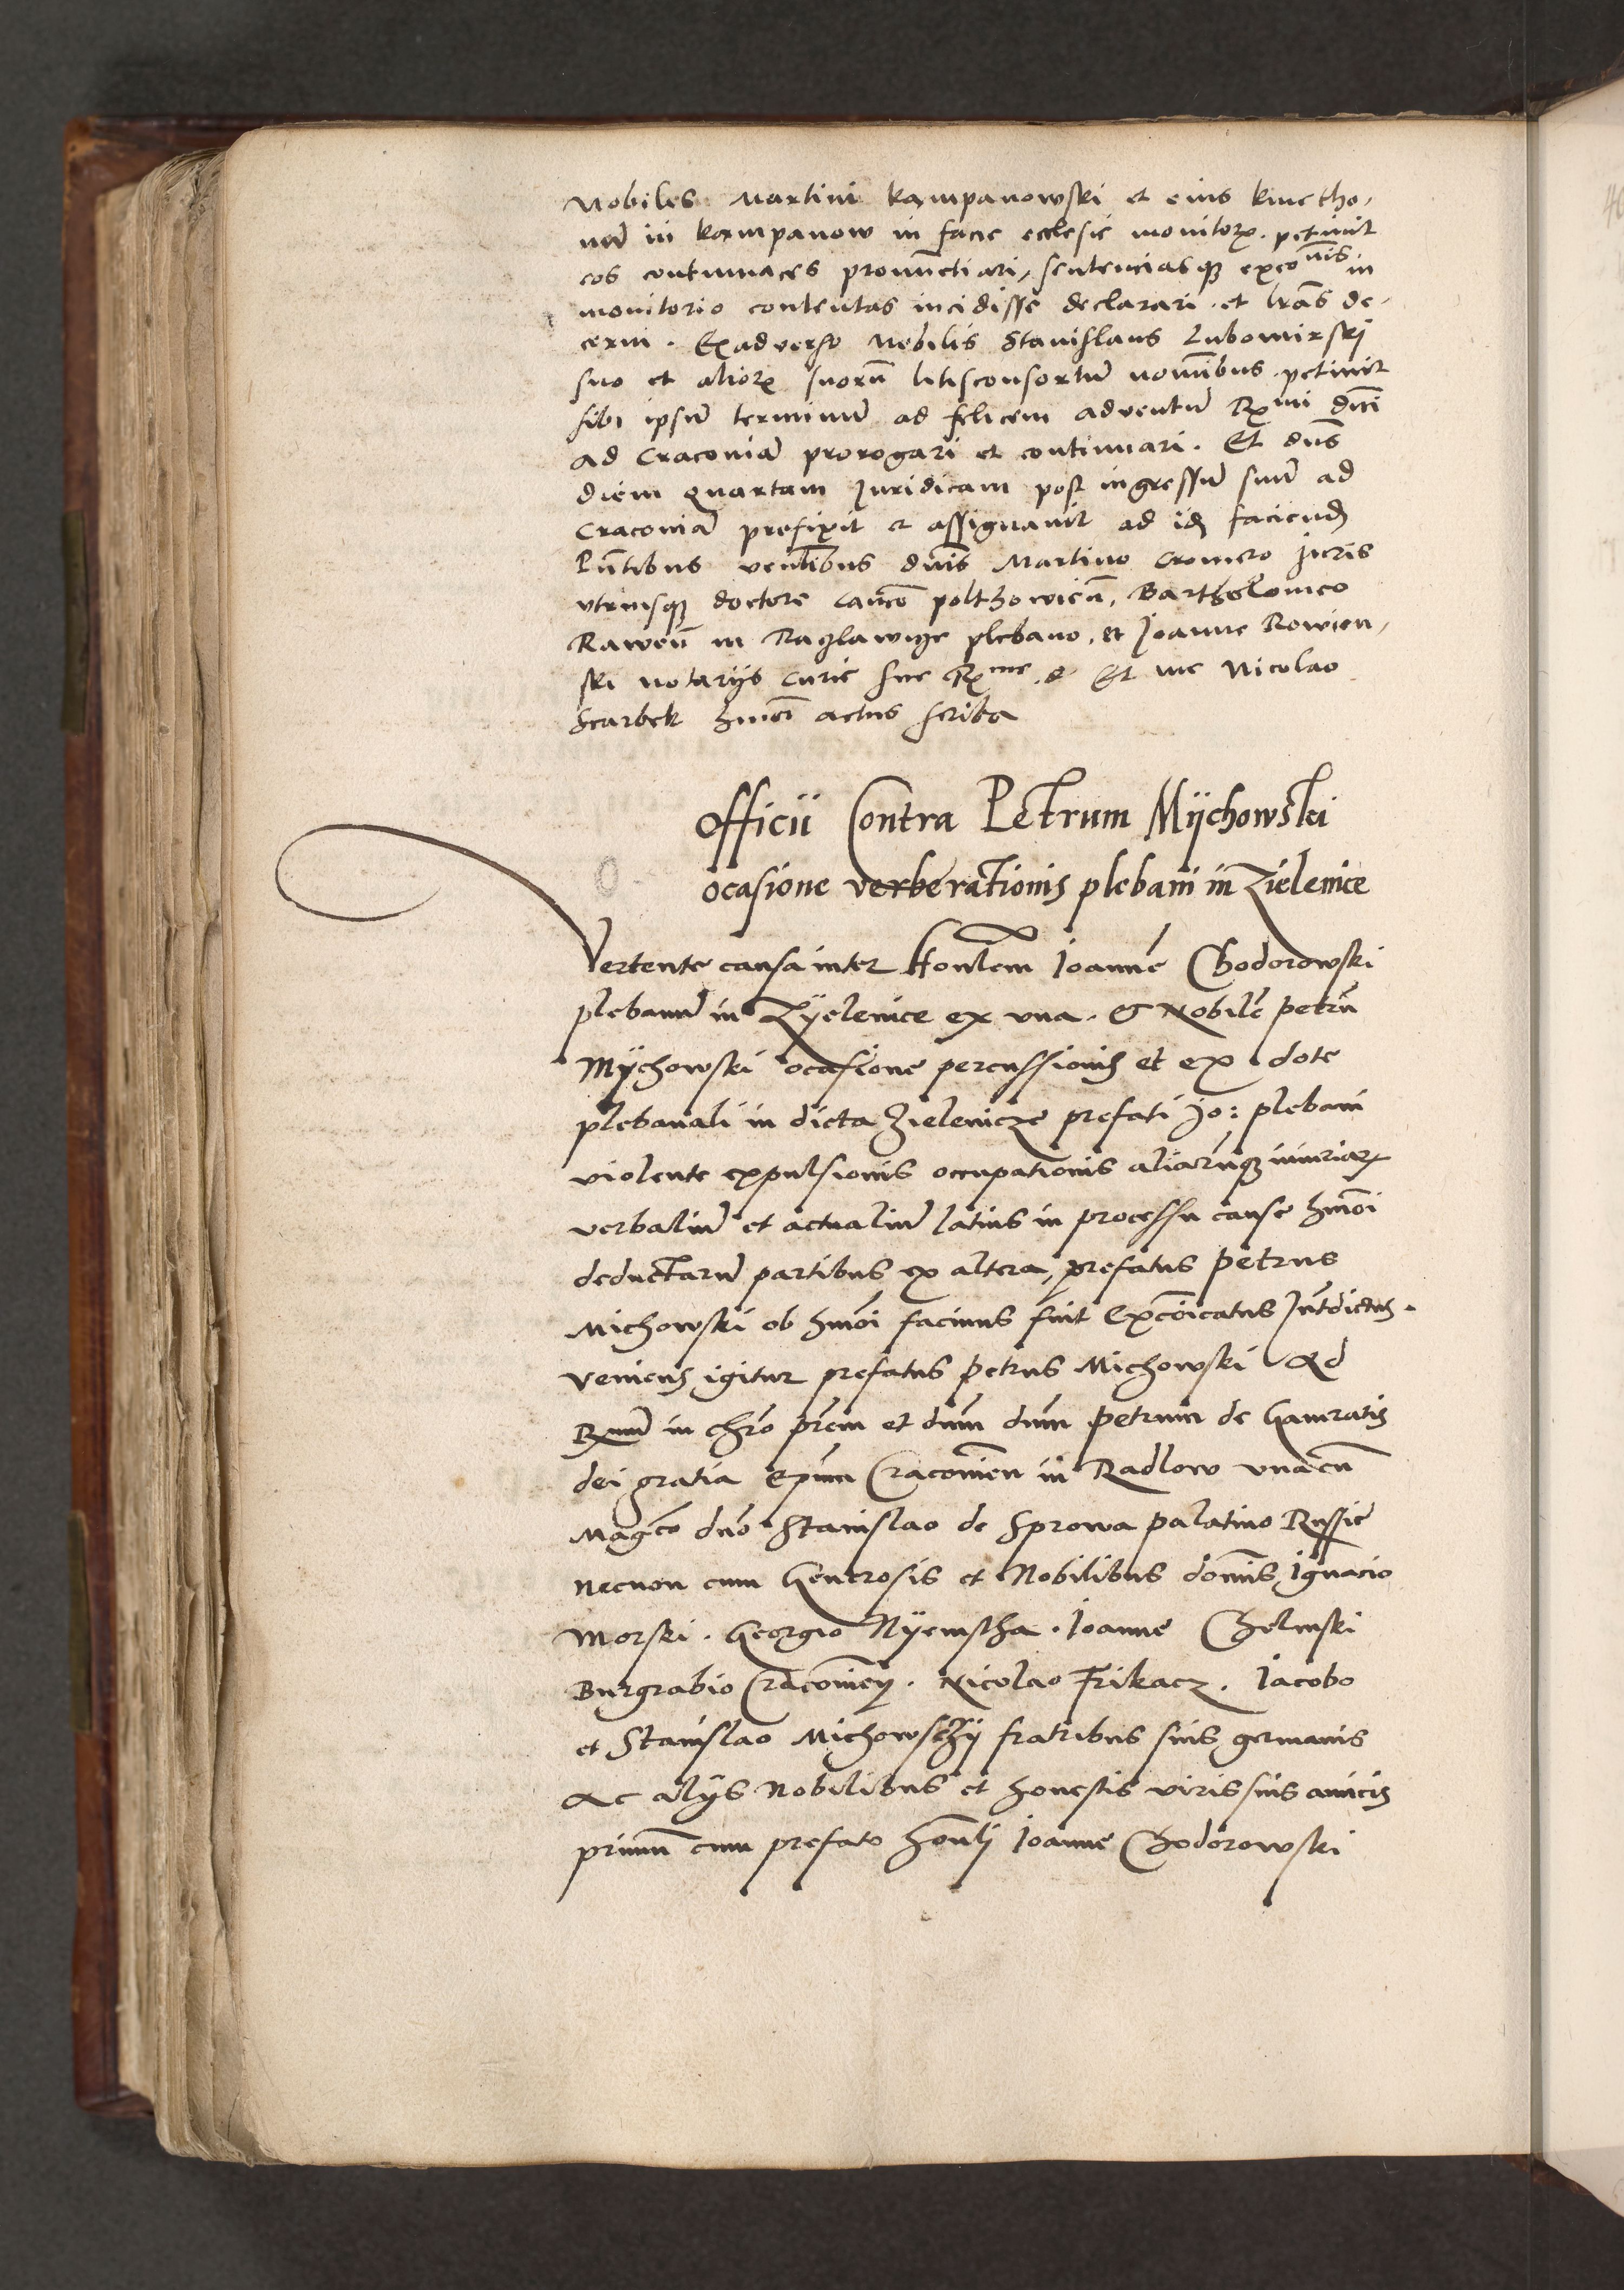 Nobiles Martini Kampanowski et eius kmetho,
nũ in Kampanow in facie ecclesie monitorꝝ. petiuit
eos contumaces pronũctiari, sentenciasqꝫ exco nis in
monitorio contentas incidisse declarari. et l̃ras de,
cerni. Ex adverso Nobilis Stanislaus Lubomirski
suo et aliorꝝ suorũ litisconsortũ nomĩbus. petiuit
sibi ipsũ terminũ ad felicem adventũ Rx̃mi dñi
ad Cracouiã prorogari et continuari. Et dñs
diem quartam Juridicam post ingressũ suũ ad
Cracouiã prefixit et assignauit ad id faciend
Pñtibus venẽlibus dñis Martino Cromero Juris
vtriusqꝫ doctore Cañco polthowieñ, Bartholomeo
Raweñ in Raczlawicze plebano, et Joanne Rowien,
ski notarijs Curie sue Rx̃me. d Et me Nicolao
Scarbek hmõi actus scriba
Officii Contra Petrum Mÿchowski
ocasione verberationis plebani in Zielenice
Vertente causa inter Honlem Joannẽ Chodorowski
plebanũ in Zÿelenice ex vna. & Nobilẽ petrũ
Mÿchowski ocasione percussionis et ex dote
plebanali in dicta Zielenicze prefati Jo: plebani
violente expulsionis occupationis aliarũqꝫ iniuriarꝝ
verbaliũ et actualiũ latius in processu cause hmõi
deductarũ partibus ex altera, prefatus petrus
Michowski ob hmõi facinus fuit Excõicatus Jñtdictus.
Veniens igitur prefatus petrus Michowski Ad
Rx̃mũ in chr̃o pr̃em et dñm dñm petrum de Gamratis
dei gratia Ep̃um Cracouieñ in Radlow vnacũ
Magco dño Stanislao de Sprowa palatino Russie
necnon cum Generosis et Nobilibus dõmis Ignacio
Morski. Georgio Nÿemstha. Joanne Chelmski
Burgrabio Cracouieñ. Nicolao Frikacz. Jacobo
et Stanislao Michowsczÿ fratribus suis germanis
Ac alijs Nobilibus et honestis viris suis amicis
primũ cum prefato honli Joanne Chodorowski